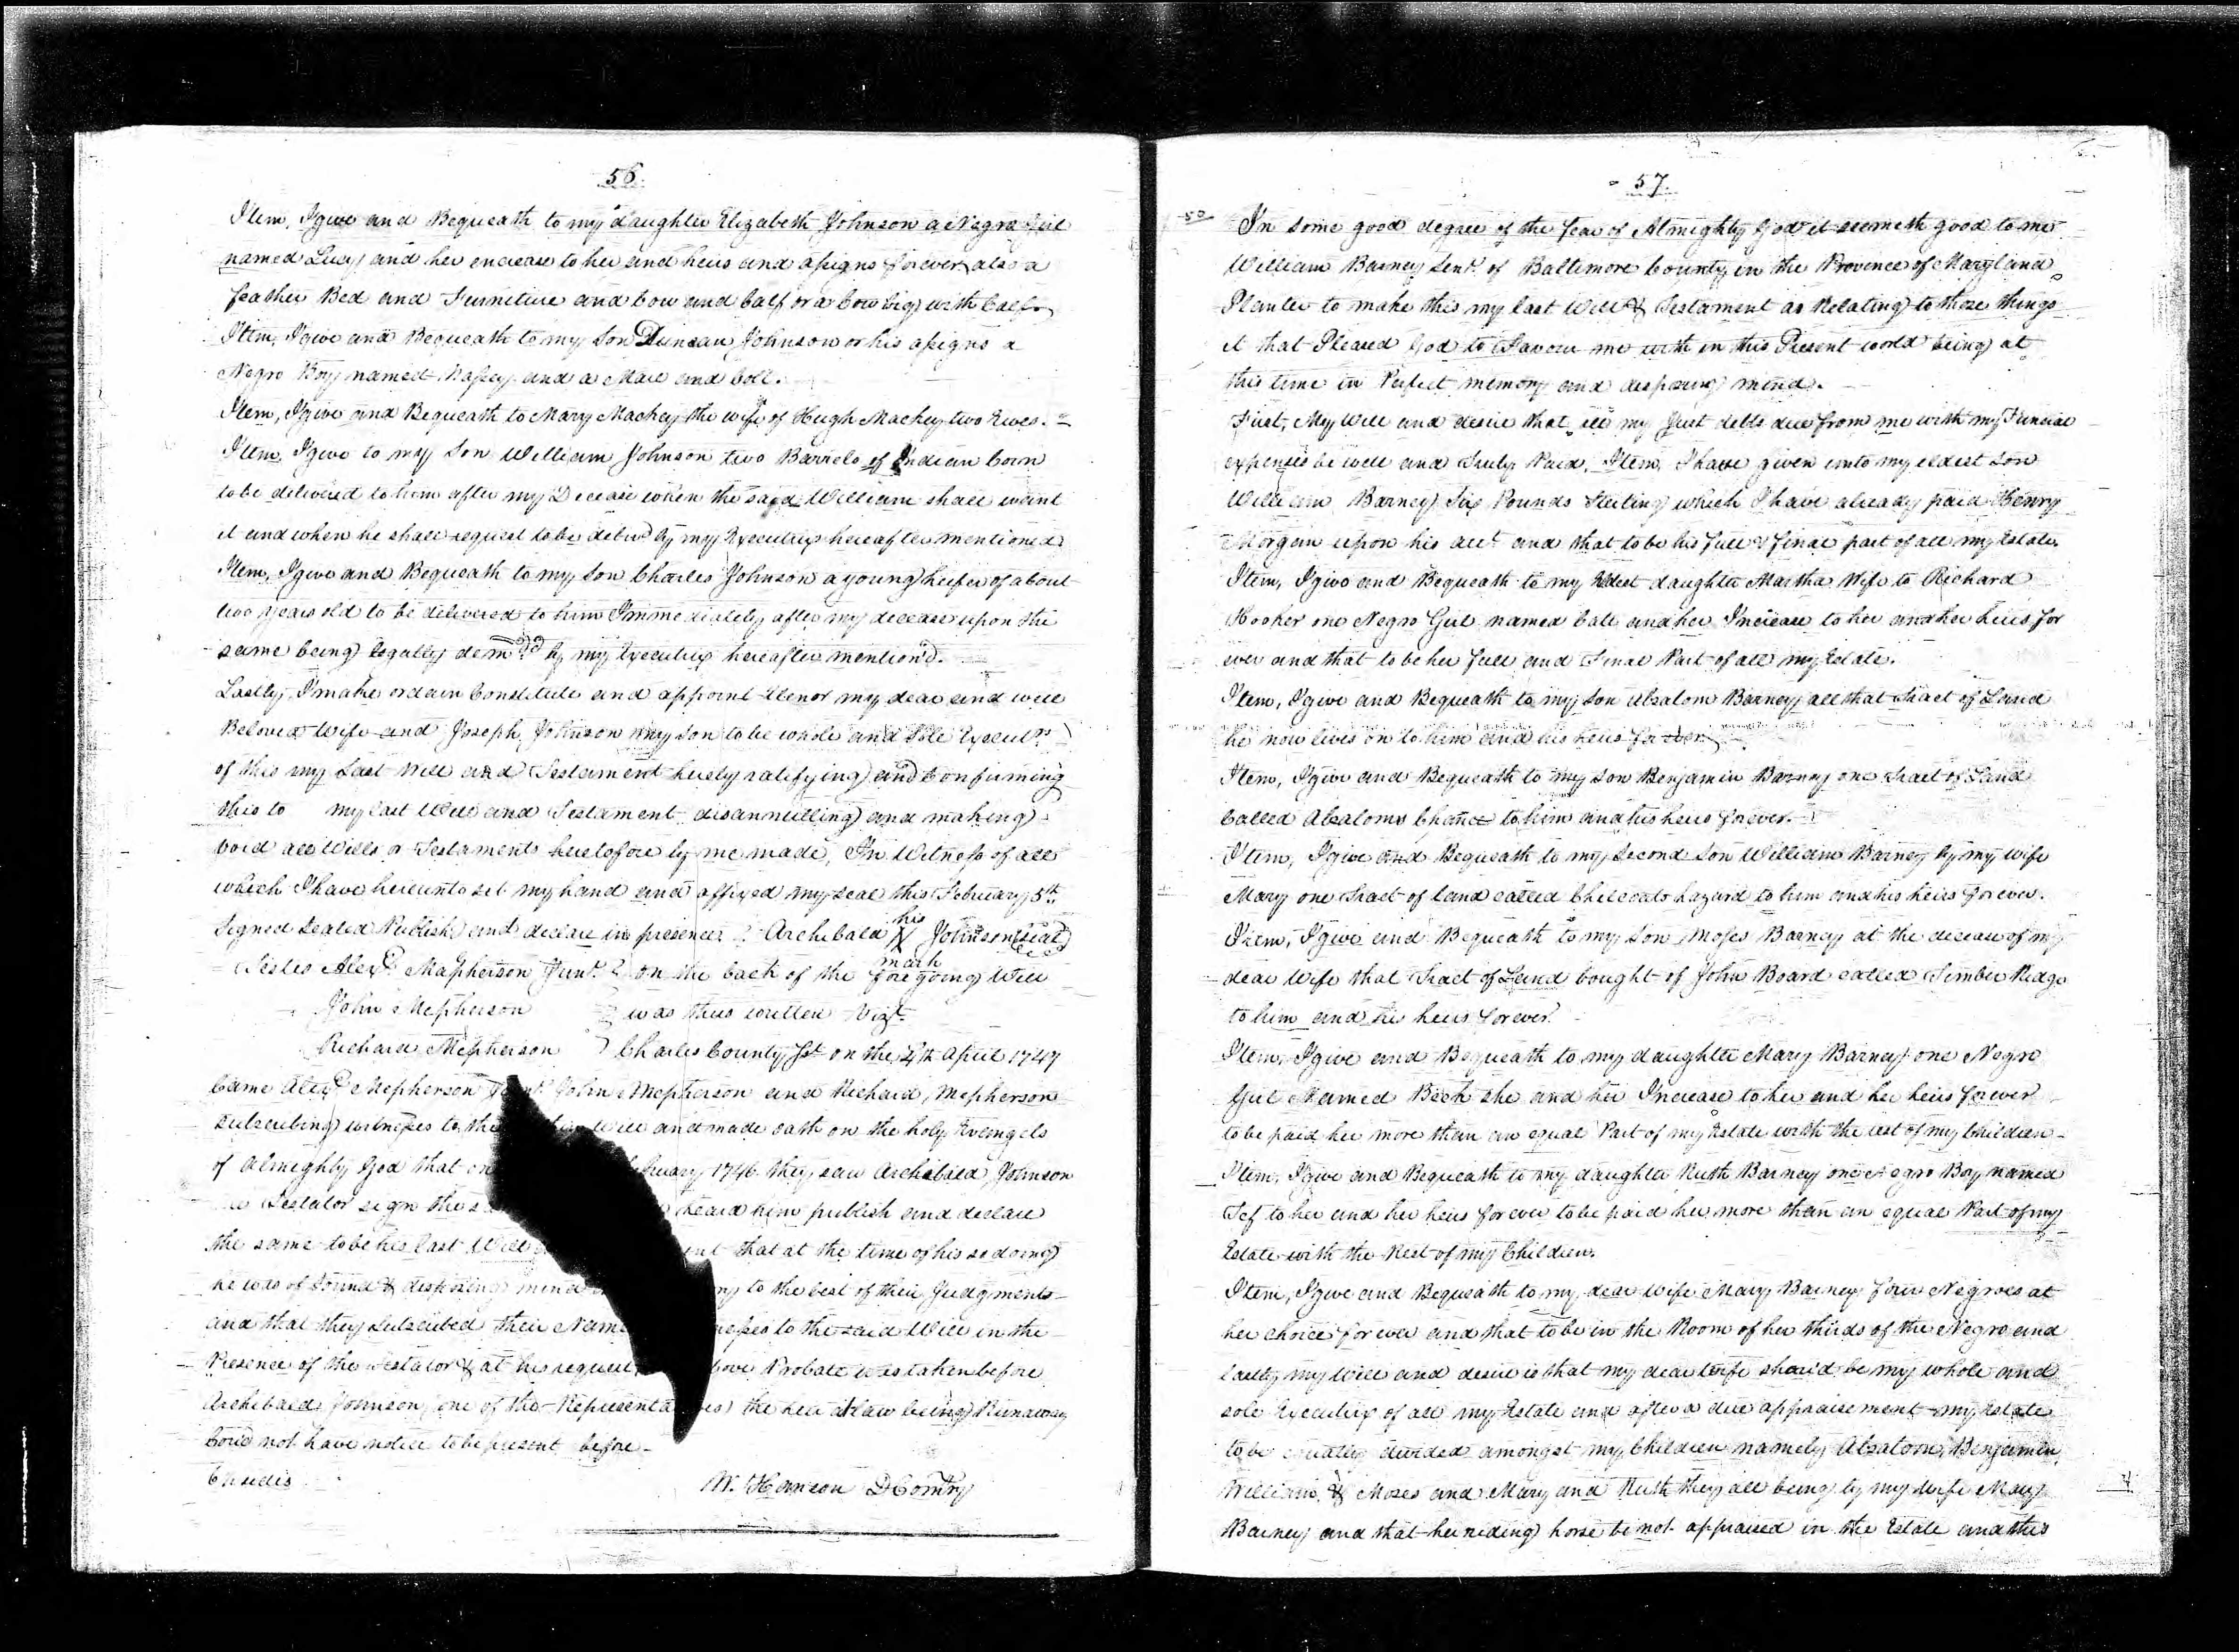 56.
Item, I give and Bequeath to my daughter Elizabeth Johnson a Negro Girl
named Lucy and her encrease to her and heirs and assigns forever also a
feather Bed and Furniture and Cow and Calf or a Cow big with Calf
Item, I give and Bequeath to my Son Duncan Johnson or his assigns a
Negro Boy named and a Mare and Colt.
Item, I give and Bequeath to Mary Mackey the wife of Hugh Mackey two Ewes.
Item, I give to my Son William Johnson two Barrels of Indian Corn
to be delivered to him after my Decease when the said William shall want
it and when he shall request to be delivd by my Executrix hereafter mentioned
Item, I give and Bequeath to my Son Charles Johnson a young heifer of about
two years old to be delivered to him Immediately after my decease upon the
same being legally demdd by my Executrix hereafter mention'd.
Lastly I make ordain Constitute and appoint Elenor my dear and well
Beloved Wife and Joseph Johnson my Son to be whole and Sole Execurs
of this my Last Will and Testament hereby ratifying and Confirming
this to my last Will and Testament disannulling and making
void all Wills or Testaments heretofore by me made, In Witness of all
which I have hereunto set my hand and affixed my seal this February 5th
Signed Sealed Publish and declare in presence Archebald his X mark Johnson (Seal)
Testes Alexr. Mapherson Junr. on the back of the foregoing Will
John Mcpherson was thus written Vizt.
Richard Mcpherson Charles County Sst. on the 4th April 1747
Came Alexr Mcpherson Junr. John Mcpherson and Richard Mcpherson
Subscribing witnesses to the Will and made oath on the holy Evengels
of Almighty God that on February 1746 they saw Archibald Johnson
Testator sign the heard him publish and declare
the same to be his last Will that at the time of his so doing
he was of Sound & disposing mind to the best of their Judgments
and that they Subscribed their Name to the said Will in the
Presence of the Testator & at his request Probate was taken before
Archebald Johnson one of the Representatives the heir at law being Runaway
Coud not have notice to be present before
W. Hanson DComry
57.
50
In some good degree of the fear of Almighty God it seemeth good to me
William Barney Senr. of Baltimore County in the Province of Maryland
Planter to make this my last Will & Testament as Relating to those things
it that Pleased God to Favour me with in this Present world being at
this time in Perfect memory and disposing mind.
First, My Will and desire that all my Just debts due from me with my Funeral
expenses be well and Truly Paid, Item, I have given unto my eldest Son
William Barney Six Pounds Sterling which I have already paid Henry
Morgan upon his acct and that to be his full & final part of all my Estate,
Item, I give and Bequeath to my Eldest daughter Martha Wife to Richard
Hooker one Negro Girl named Cate and her Increase to her and her heirs for
ever and that to be her full and Final Part of all my Estate.
Item, I give and Bequeath to my Son Absalom Barney all that Tract of Land
he now lives on to him and his heirs for ever
Item, I give and Bequeath to my Son Benjamin Barney one Tract of Land
Called Absaloms Chance to him and his heirs forever.
Item, I give and Bequeath to my Second Son William Barney by my wife
Mary one Tract of land called hazard to him and his heirs forever.
Item, I give and Bequeath to my Son Moses Barney at the decease of my
dear Wife that Tract of Land bought of John Board called Timber Ridge
to him and his heirs forever.
Item, I give and Bequeath to my daughter Mary Barney one Negro
Girl Named Beck she and her Increase to her and her heirs forever
to be paid her more than an equal Part of my Estate with the rest of my Children
Item, I give and Bequeath to my daughter Ruth Barney one Negro Boy named
Jef to her and her heirs for ever to be paid her more than an equal Part of my
Estate with the Rest of my Children.
Item, I give and Bequeath to my dear wife Mary Barney four Negroes at
her choice for ever and that to be in the Room of her thirds of the Negro and
lastly my Will and desire is that my dear wife shou'd be my whole and
sole Executrix of all my Estate and after a due appraisement my Estate
to be equally divided amongst my Children namely Absalom, Benjamin,
William, & Moses and Mary and Ruth they all being by my Wife Mary
Barney and that her riding horse be not appraised in the Estate and this